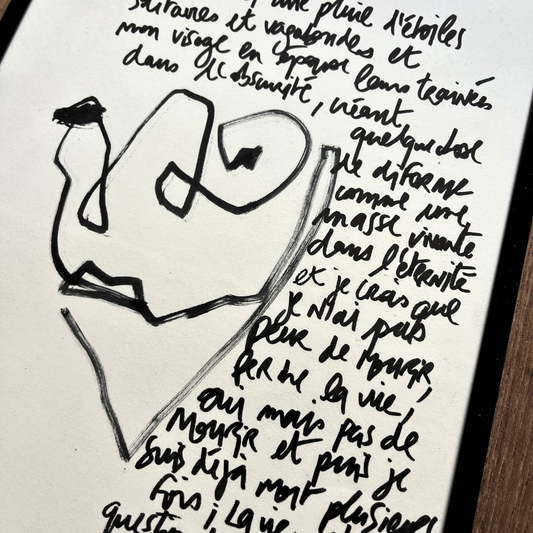 une pluie d'étoiles
solitaires et vagabondes et
mon visage en époque leurs trainées
dans l'obscurité, créant
quelque chose
de diforme
comme une
masse vivante
dans l'éternité
et je crois que
je n'ai pas
peur de mourir,
perdre la vie,
oui mais pas de
mourir et puis je
suis déjà mort plusieurs
fois ; la vie
question